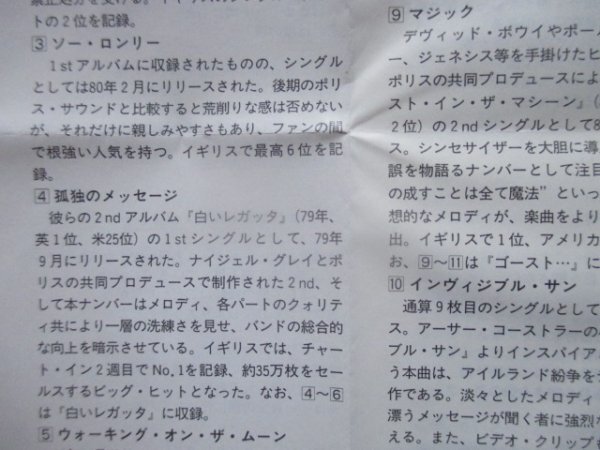 禁止処分を受ける。イギリスでのチャー
トの2位を記録。
3 ソー・ロンリー
1stアルバムに収録されたものの、シングル
としては80年2月にリリースされた。後期のポリ
ス・サウンドと比較すると荒削りな感は否めない
が、それだけに親しみやすさもあり、ファンの間
で根強い人気を持つ。イギリスで最高6位を記
録。
4 孤独のメッセージ
彼らの2ndアルバム『白いレガッタ』(79年、
英1位、米25位)の1stシングルとして、79年
9月にリリースされた。ナイジェル・グレイとポ
リスの共同プロデュースで制作された2nd、そ
して本ナンバーはメロディ、各パートのクォリテ
ィ共により一層の洗練さを見せ、バンドの総合的
な向上を暗示させている。イギリスでは、チャー
ト・イン2週目でNo.1を記録、約35万枚をセー
ルスするビッグ・ヒットとなった。なお、4〜6
は『白いレガッタ』に収録。
5 ウォーキング・オン・ザ・ムーン
9 マジック
デヴィッド・ボウイやポー
ー、ジェネシス等を手掛けたヒ
ポリスの共同プロデュースによ
スト・イン・ザ・マシーン』(
2位)の2ndシングルとして8
ス。シンセサイザーを大胆に導
誤を物語るナンバーとして注目
の成すことは全て魔法”といっ
想的なメロディが、楽曲をより
出。イギリスで1位、アメリカ
お、9〜11は『ゴースト…』に
10 インヴィジブル・サン
通算9枚目のシングルとして
ス。アーサー・コーストラーの
ブル・サン』よりインスパイア
う本曲は、アイルランド紛争を
作である。淡々としたメロディ
漂うメッセージが聞く者に強烈な
える。また、ビデオ・クリップも